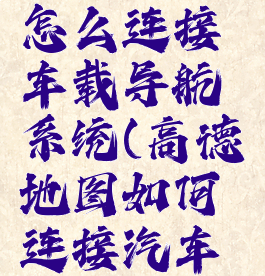 怎么连接
车载导航
系统(高德
地图如何
连接汽车